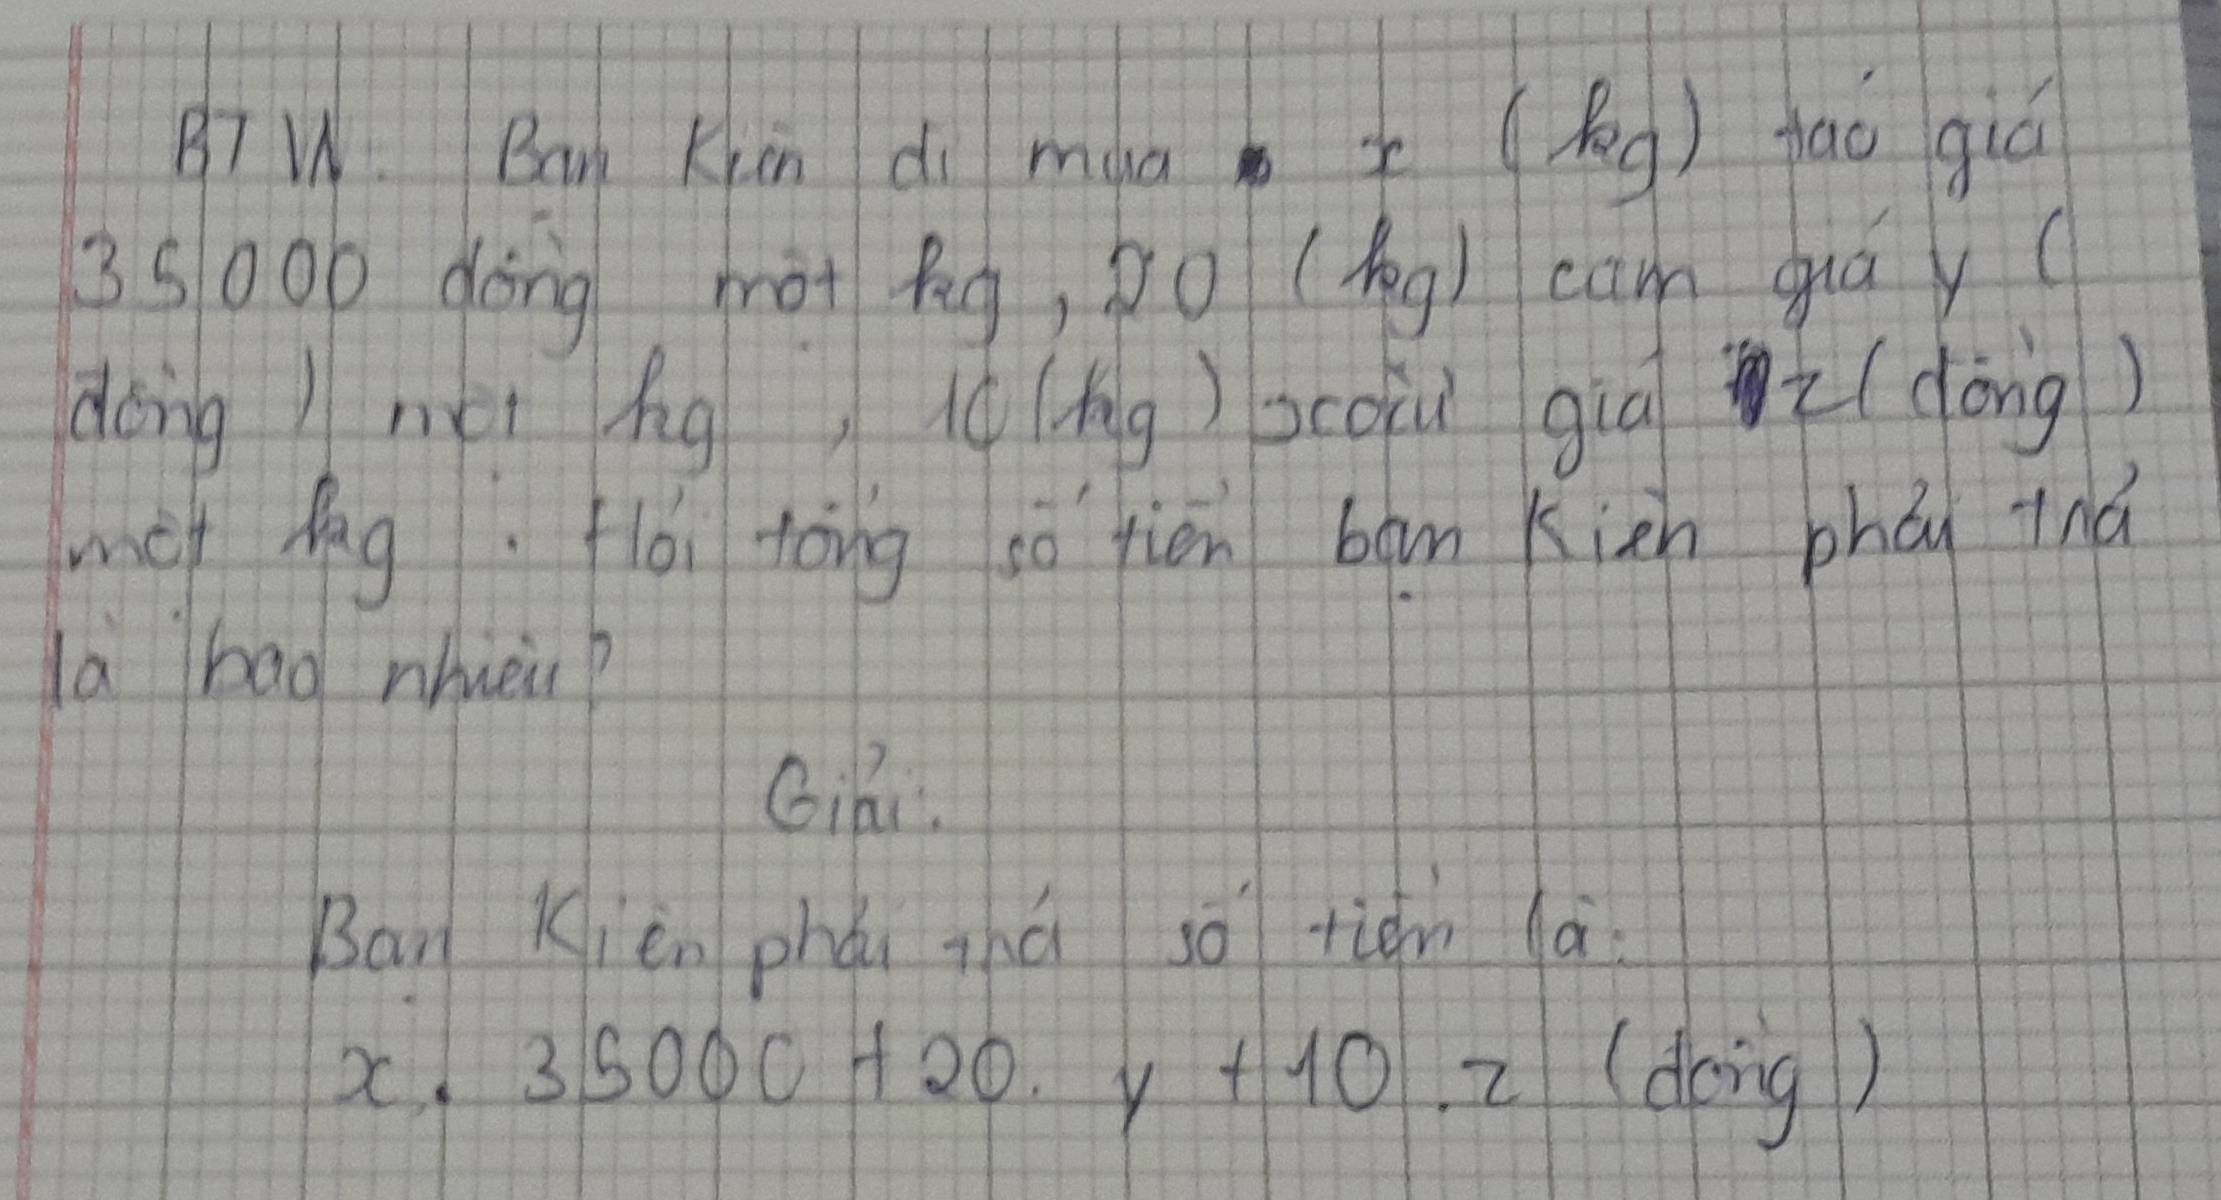 BTVN: Bạn Kiên đi mua x (kg) táo giá
35000 đồng một kg, 20 (kg) cam giá y (
đồng) một kg, 10 (kg) xoài giá z (đồng)
một kg. Hỏi tổng số tiền bạn Kiên phải trả
là bao nhiêu?
Giải:
Bạn Kiên phải trả số tiền là:
x. 35000 + 20. y + 10. z (đồng)